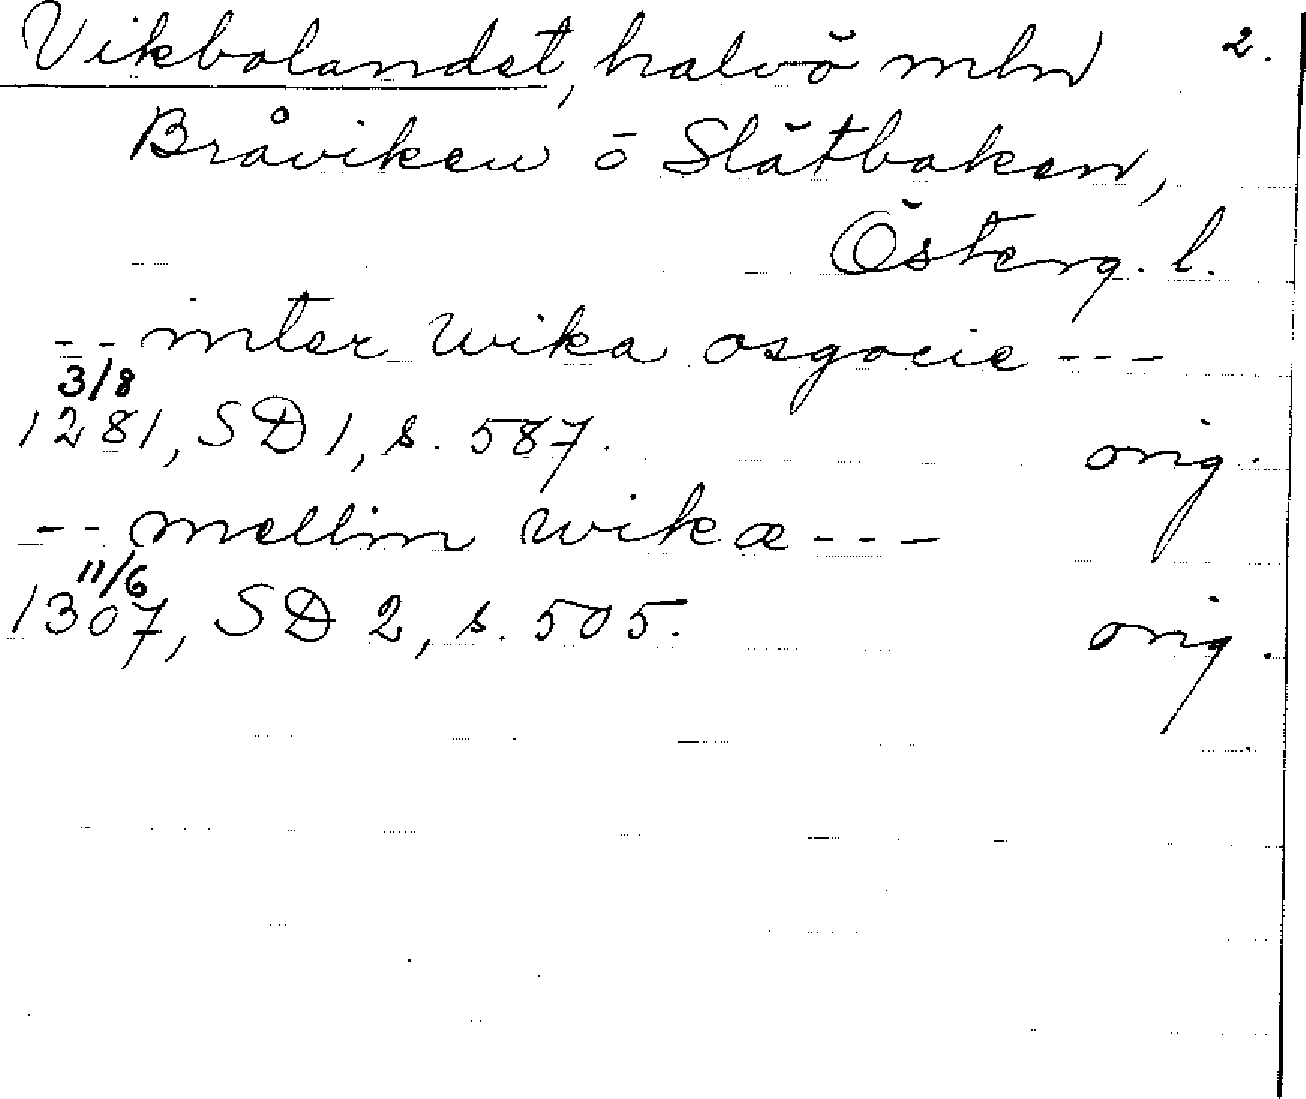 Vikbolandet, halvö mln 2.
Bråviken o Slätbaken,
Österg. l.
-- inter wika osgocie ---
3/8
1281, SD 1, s. 587. orig.
-- mellim wikæ ---
11/6
1307, SD 2, s. 505. orig.